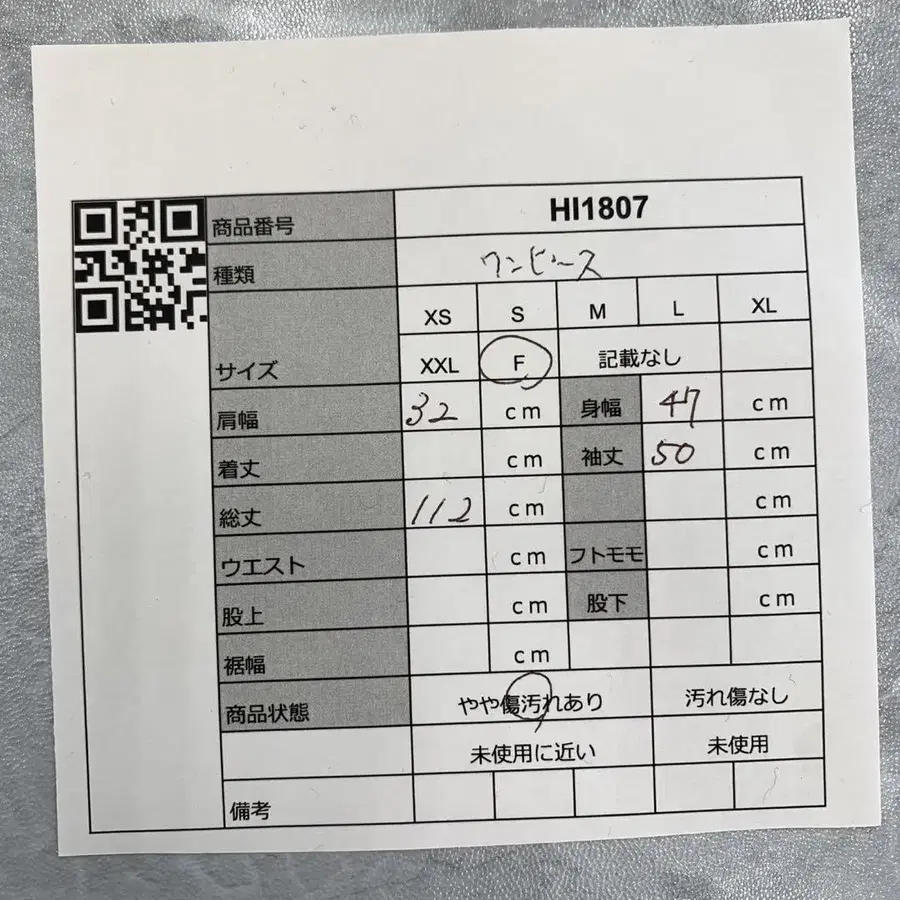 商品番号 HI1807
種類 ワンピース
XS S M L XL
サイズ XXL F 記載なし
肩幅 32 cm 身幅 47 cm
着丈 cm 袖丈 50 cm
総丈 112 cm cm
ウエスト cm フトモモ cm
股上 cm 股下 cm
裾幅 cm
商品状態 やや傷汚れあり 汚れ傷なし
未使用に近い 未使用
備考